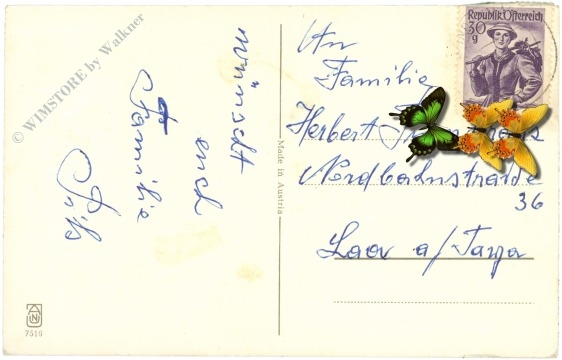 © WIMSTORE by Walkner
wünscht
euch
Familie
Made in Austria
Republik Österreich
30
g
An
Familie
Herbert
Nordbahnstraße
36
Laa a/Taya
7516